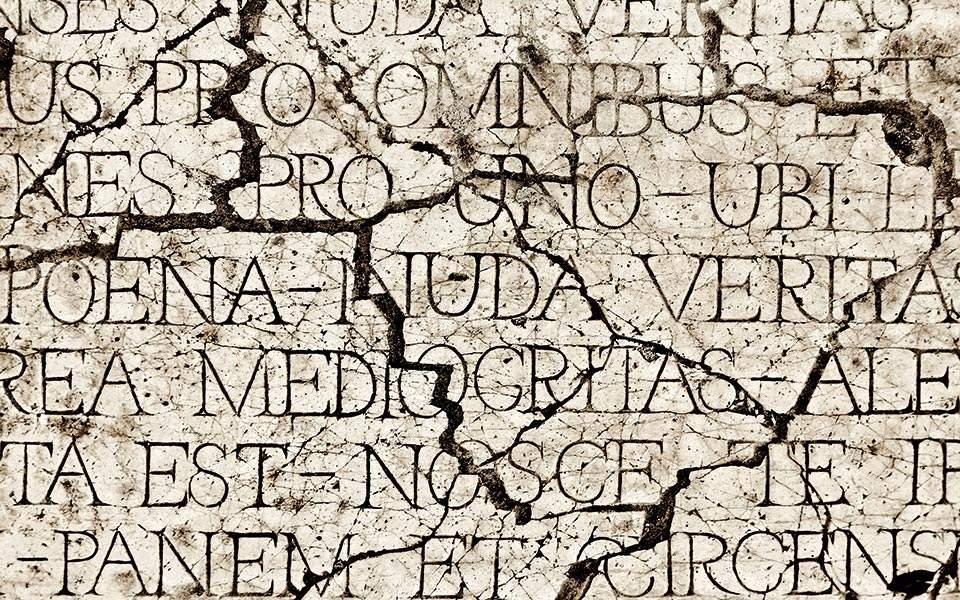 NSES NUDA VERITAS
US PRO OMNIBUS ET
NES PRO UNO - UBI LI
POENA - NUDA VERITAS
REA MEDIOCRITAS - ALE
TA EST - NOSCE TE IP
- PANEM ET CIRCENS